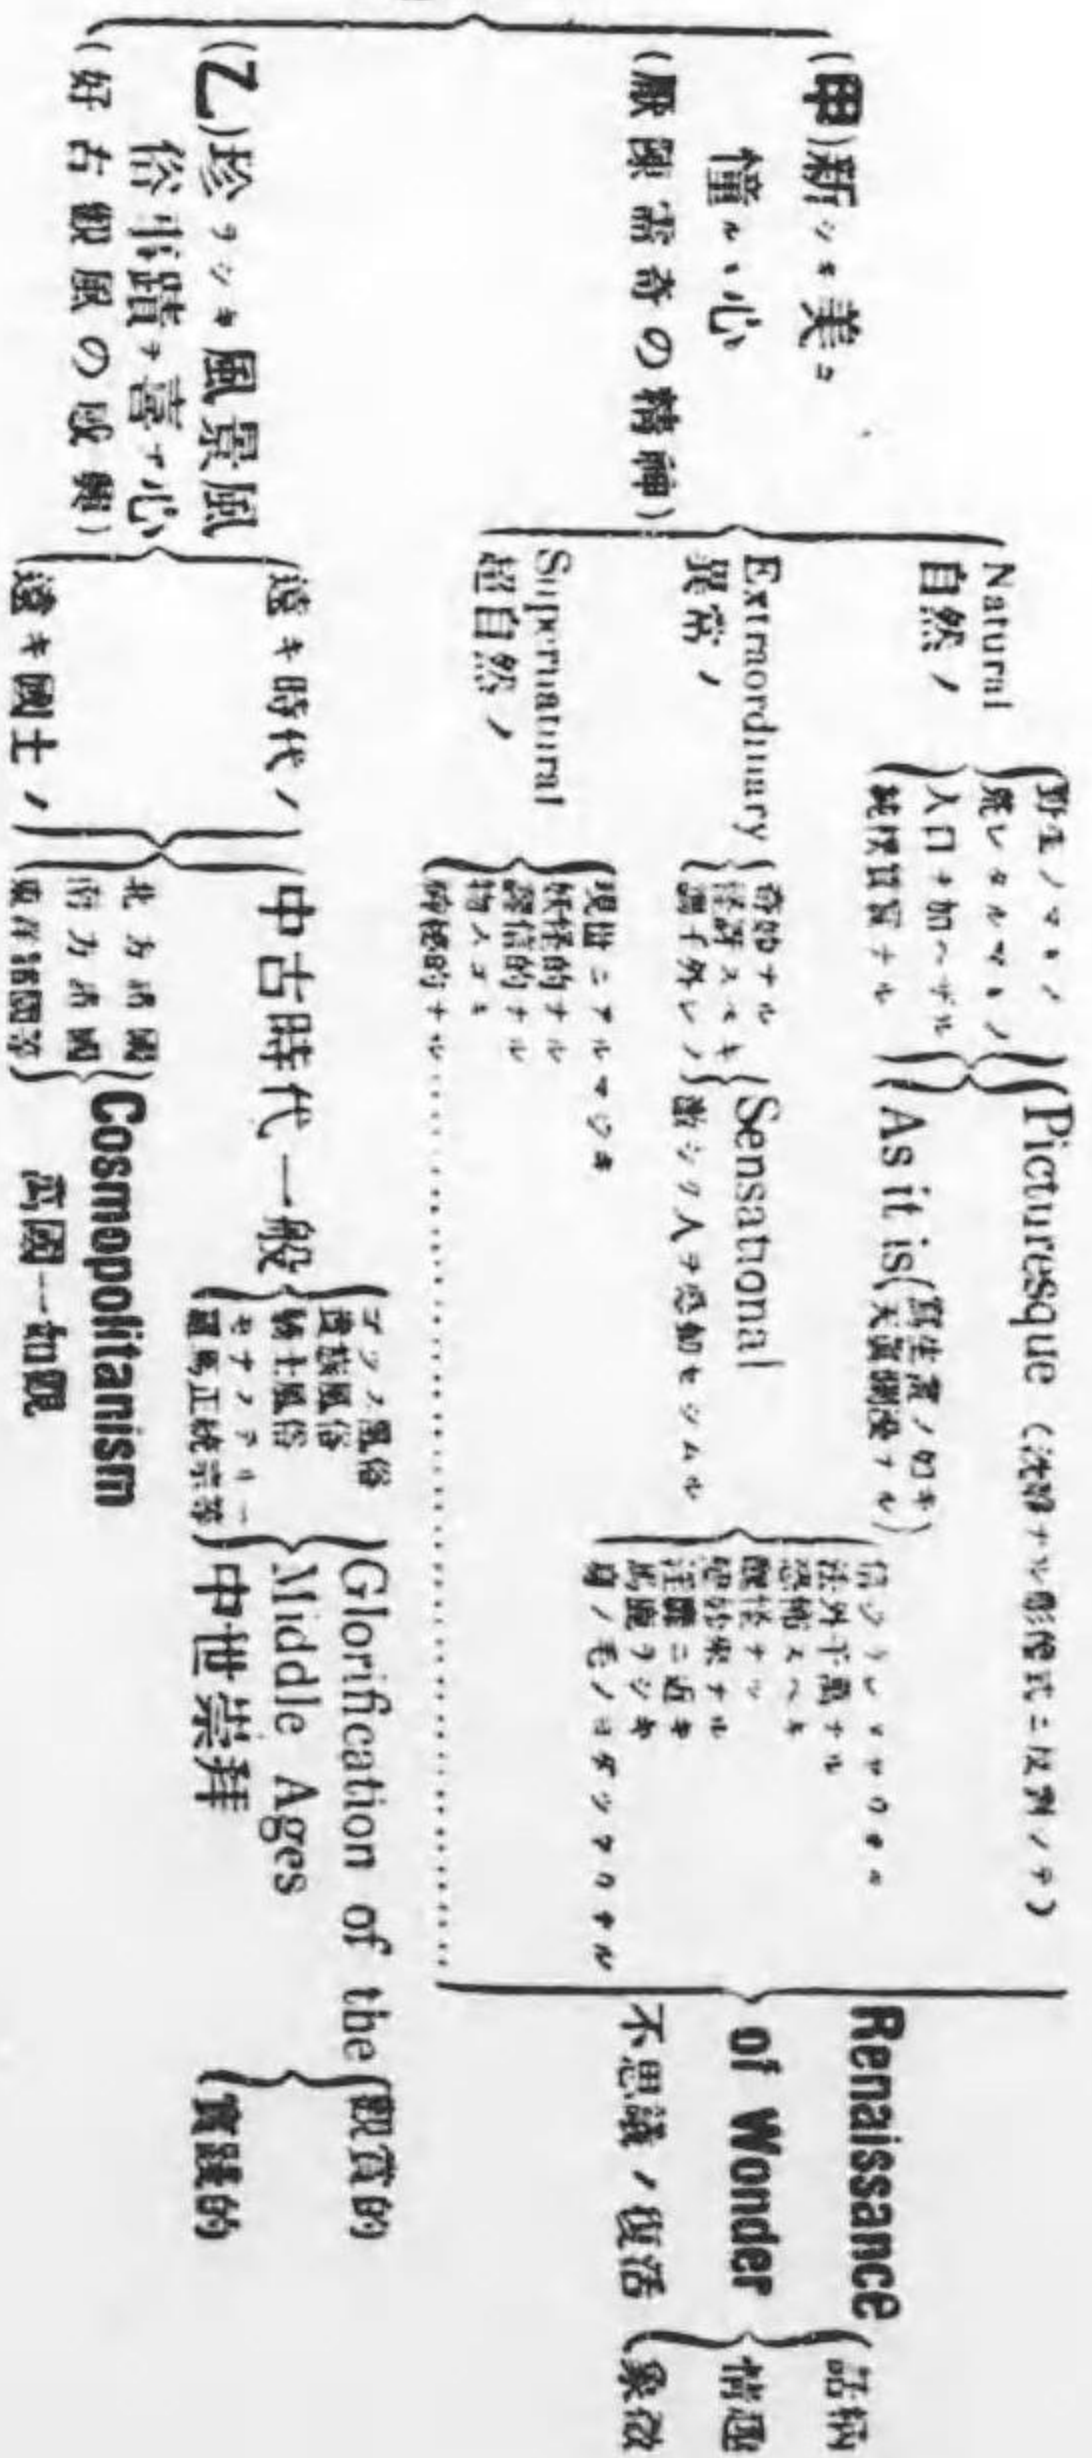 (甲)新シキ美ニ
憧ルヽ心
(厭陳需奇の精神)
Natural
自然ノ
野生ノマヽノ
荒レタルマヽノ
人口ヲ加ヘザル
純樸質實ナル
Picturesque (沈靜ナル彫像式ニ反對シテ)
As it is(寫生畫ノ如キ)
(天眞爛漫ナル)
Extraordinary
異常ノ
奇妙ナル
怪訝スベキ
調子外レノ
Sensational
激シク人ヲ感動セシムル
信ジラレマヤウナ
法外千萬ナル
恐怖スベキ
醜怪ナル
絕妙ナル
淫靡ニ近キ
馬鹿ラシキ
身ノ毛ノヨダツヤウナル
Supernatural
超自然ノ
現世ニアルマジキ
妖怪的ナル
迷信的ナル
物スゴキ
神秘的ナル
Renaissance
of Wonder
不思議ノ復活
話柄
情趣
象徵
(乙)珍ラシキ風景風
俗事蹟ヲ喜ブ心
(好古觀風の感興)
遠キ時代ノ
遠キ國土ノ
中古時代一般
ゴシク風俗
貴族風俗
騎士風俗
モナーテリー
羅馬正統宗等
Glorification of the
Middle Ages
中世崇拜
觀賞的
實踐的
北方諸國
南方諸國
東方諸國等
Cosmopolitanism
萬國一如觀